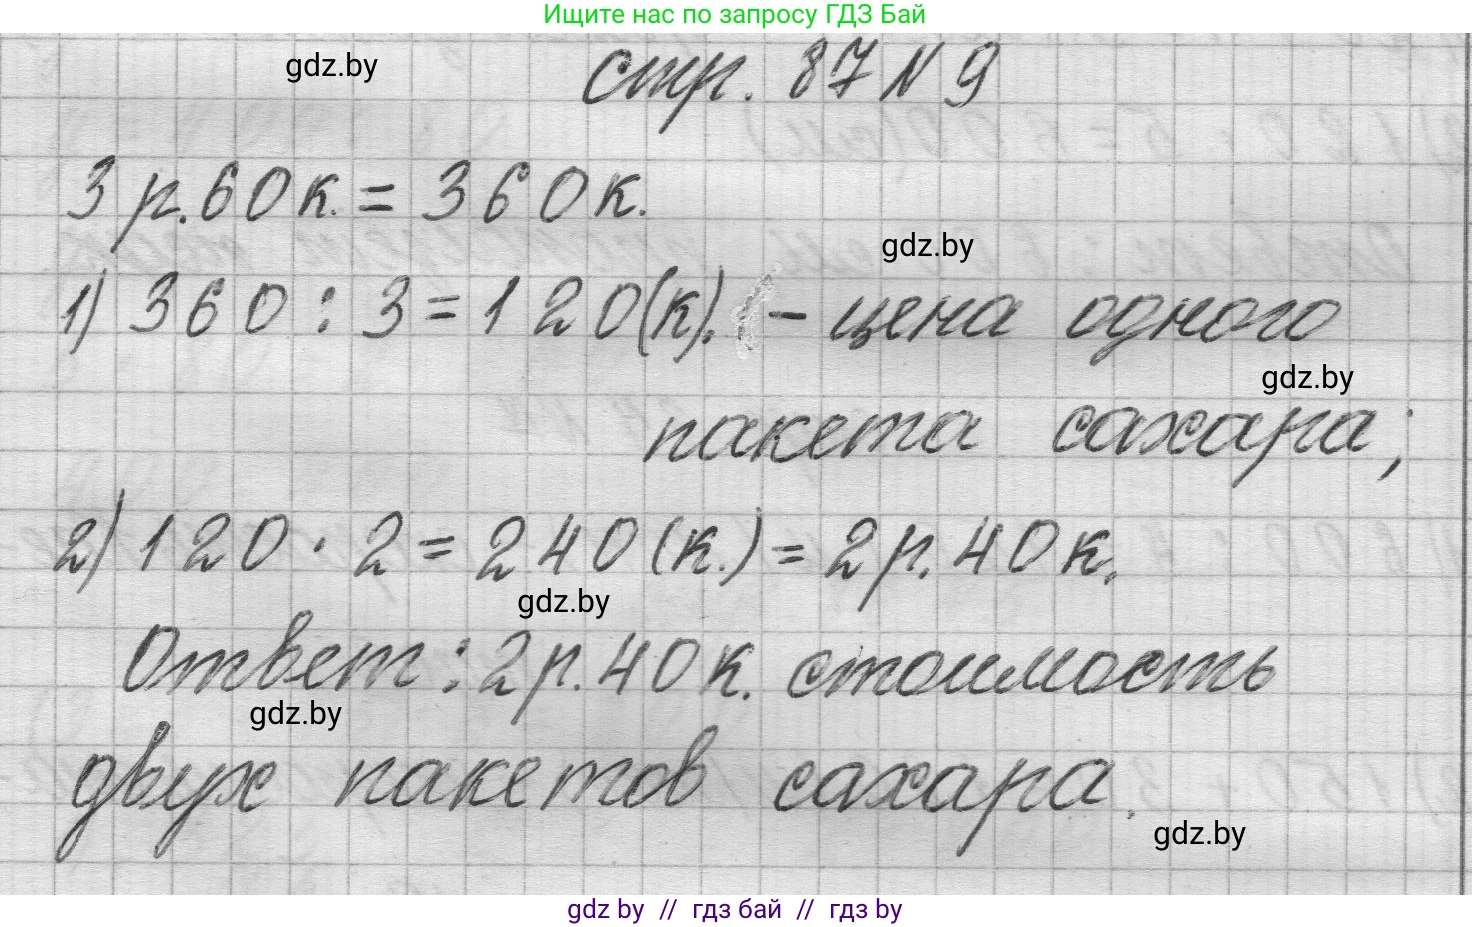 Ищите нас по запросу ГДЗ Бай
gdz.by
стр. 87 N 9
3 р. 60 к. = 360 к.
gdz.by
1) 360 : 3 = 120 (к). – цена одного
gdz.by
пакета сахара;
2) 120 · 2 = 240 (к.) = 2 р. 40 к.
gdz.by
Ответ : 2 р. 40 к. стоимость
gdz.by
двух пакетов сахара.
gdz.by
gdz by // гдз бай // гдз by